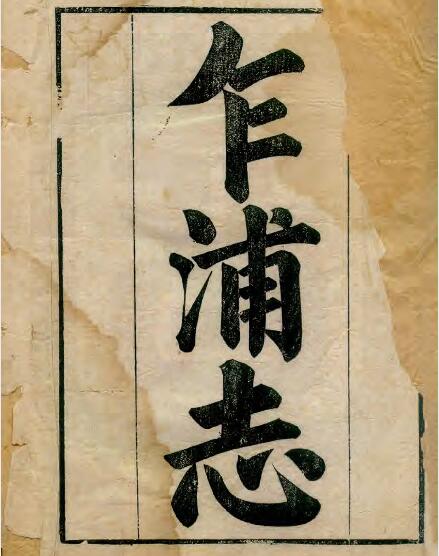 乍浦志